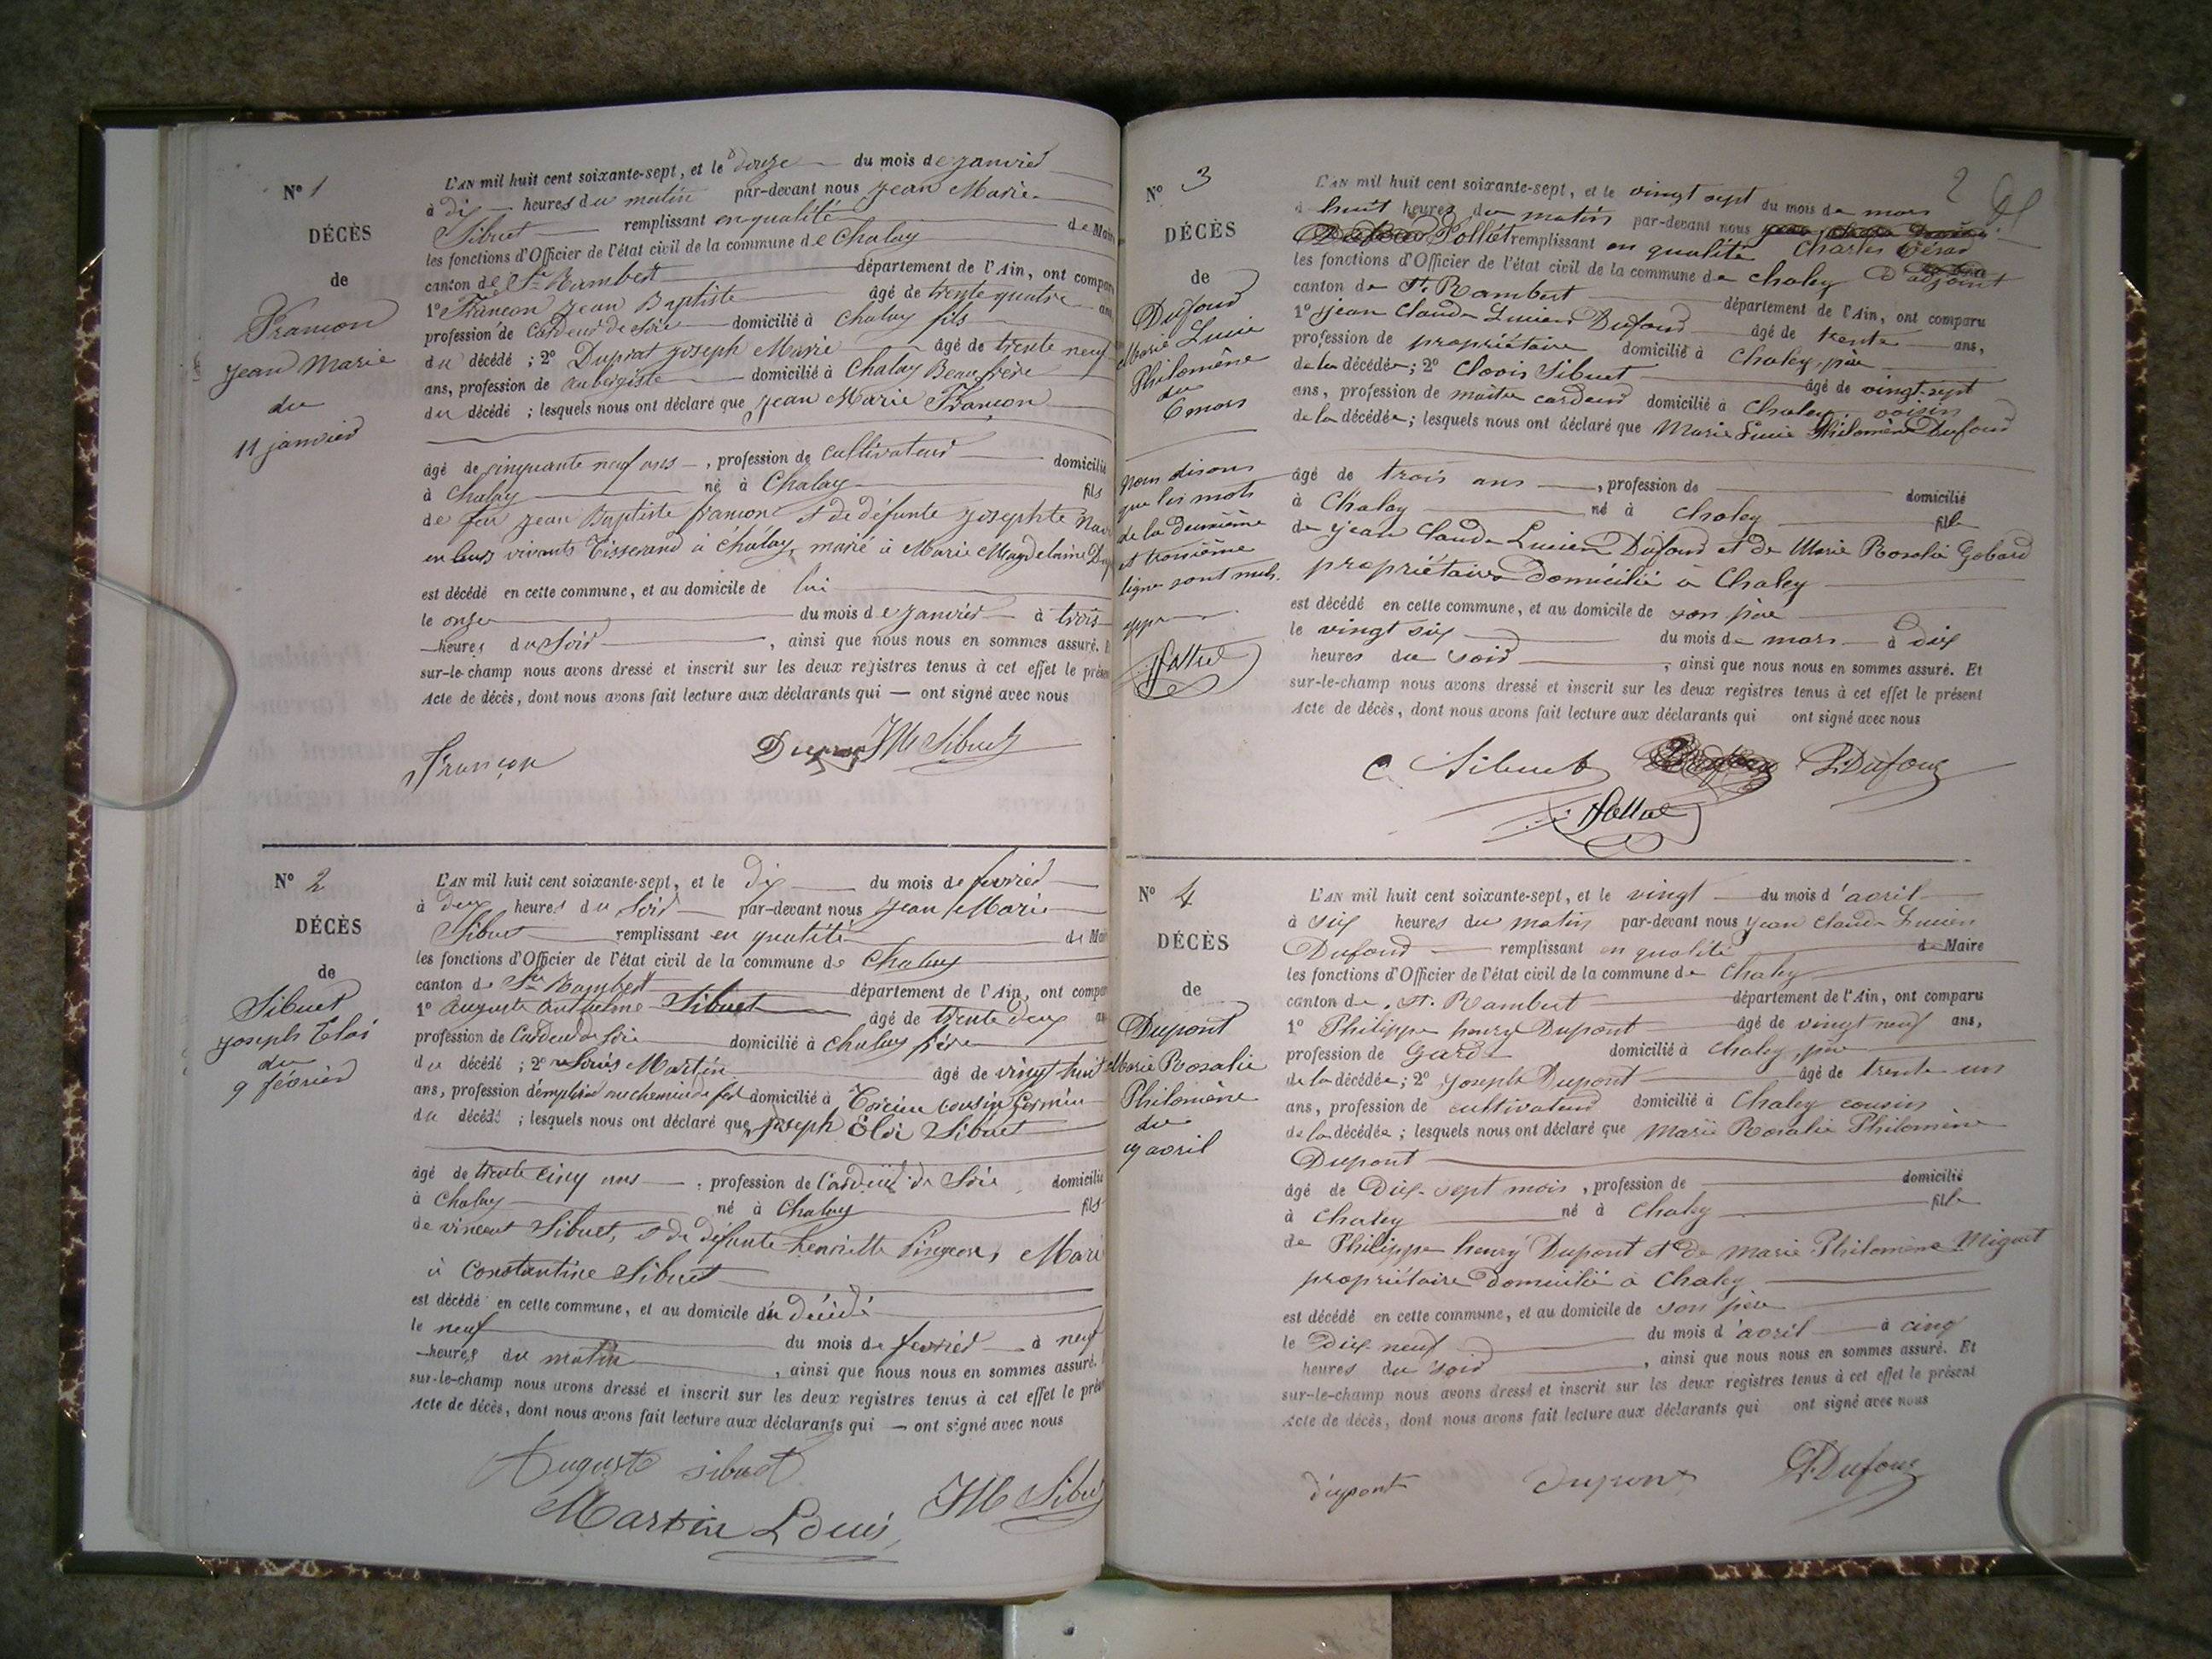 N° 1
DÉCÈS
de
Françon
Jean Marie
du
11 janvier
L'AN mil huit cent soixante-sept, et le douze du mois de janvier
à dix heures du matin par-devant nous Jean Marie
Sibuet remplissant en qualité de Maire
les fonctions d'Officier de l'état civil de la commune de Chaley
canton de St Rambert département de l'Ain, ont comparu
1° Françon Jean Baptiste âgé de trente quatre ans
profession de Cardeur de Soie domicilié à Chaley fils
du décédé ; 2° Duprat Joseph Marie âgé de trente neuf
ans, profession de aubergiste domicilié à Chaley Beaufrère
du décédé ; lesquels nous ont déclaré que Jean Marie Françon
âgé de cinquante neuf ans , profession de Cultivateur domicilié
à Chaley né à Chaley fils
de feu Jean Baptiste françon et de défunte Josephte
en leurs vivants Tisserand à Chaley, marié à Marie Magdelaine
est décédé en cette commune, et au domicile de lui
le onze du mois de janvier à trois
heures du Soir , ainsi que nous nous en sommes assuré.
sur-le-champ nous avons dressé et inscrit sur les deux registres tenus à cet effet le présent
Acte de décès, dont nous avons fait lecture aux déclarants qui — ont signé avec nous
Françon JM Sibuet
N° 2
DÉCÈS
de
Sibuet
Joseph Eloi
du
9 février
L'AN mil huit cent soixante-sept, et le dix du mois de fevrier
à deux heures du Soir par-devant nous Jean Marie
Sibuet remplissant en qualité de Maire
les fonctions d'Officier de l'état civil de la commune de Chaley
canton de St Rambert département de l'Ain, ont comparu
1° Auguste Anthelme Sibuet âgé de trente deux ans
profession de Cardeur de Soie domicilié à Chaley frère
du décédé ; 2° Louis Martin âgé de vingt huit
ans, profession d'employé au chemin de fer domicilié à Torcieu cousin Germain
du décédé ; lesquels nous ont déclaré que Joseph Éloi Sibuet
âgé de trente cinq ans , profession de Cardeur de Soie domicilié
à Chaley né à Chaley fils
de vincent Sibuet, et de défunte henriette Pingeon, Marié
à Constantine Sibuet
est décédé en cette commune, et au domicile du décédé
le neuf du mois de fevrier à neuf
heures du matin , ainsi que nous nous en sommes assuré.
sur-le-champ nous avons dressé et inscrit sur les deux registres tenus à cet effet le présent
Acte de décès, dont nous avons fait lecture aux déclarants qui — ont signé avec nous
Auguste sibuet
Martin Louis, JM Sibuet
2
N° 3
DÉCÈS
de
Dufour
Marie Lucie
Philomène
du
6 mars
nous disons
que les mots
de la deuxième
et troisième
ligne sont nuls.
L'AN mil huit cent soixante-sept, et le vingt sept du mois de mars
à huit heures du matin par-devant nous
Polliet remplissant en qualité Charles Gérard
les fonctions d'Officier de l'état civil de la commune de Chaley d'adjoint
canton de St. Rambert département de l'Ain, ont comparu
1° Jean Claude Lucien Dufour âgé de trente ans,
profession de propriétaire domicilié à Chaley, père
de la décédée ; 2° Clovis Sibuet âgé de vingt-sept
ans, profession de maître cardeur domicilié à Chaley, voisin
de la décédée ; lesquels nous ont déclaré que Marie Lucie Philomène Dufour
âgé de trois ans , profession de domicilié
à Chaley né à Chaley fille
de Jean Claude Lucien Dufour et de Marie Rosalie Gobard
propriétaire domicilié à Chaley
est décédé en cette commune, et au domicile de son père
le vingt six du mois de mars à dix
heures du soir , ainsi que nous nous en sommes assuré. Et
sur-le-champ nous avons dressé et inscrit sur les deux registres tenus à cet effet le présent
Acte de décès, dont nous avons fait lecture aux déclarants qui ont signé avec nous
C. Sibuet L. Dufour
N° 4
DÉCÈS
de
Dupont
Marie Rosalie
Philomène
du
19 avril
L'AN mil huit cent soixante-sept, et le vingt du mois d'avril
à six heures du matin par-devant nous Jean Claude Lucien
Dufour remplissant en qualité de Maire
les fonctions d'Officier de l'état civil de la commune de Chaley
canton de St. Rambert département de l'Ain, ont comparu
1° Philippe henry Dupont âgé de vingt neuf ans,
profession de Garde domicilié à Chaley, père
de la décédée ; 2° Joseph Dupont âgé de trente un
ans, profession de cultivateur domicilié à Chaley cousin
de la décédée ; lesquels nous ont déclaré que Marie Rosalie Philomène
Dupont
âgé de Dix-sept mois , profession de domicilié
à Chaley né à Chaley fille
de Philippe henry Dupont et de Marie Philomène Miguet
propriétaire domicilié à Chaley
est décédé en cette commune, et au domicile de son père
le Dix-neuf du mois d'avril à cinq
heures du soir , ainsi que nous nous en sommes assuré. Et
sur-le-champ nous avons dressé et inscrit sur les deux registres tenus à cet effet le présent
Acte de décès, dont nous avons fait lecture aux déclarants qui ont signé avec nous
dupont dupont L. Dufour